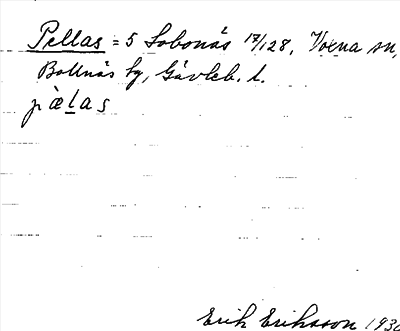 Pellas = 5 Sobonäs 17/128, Voxna sn,
Bollnäs by, Gävleb. l.
pælas
Erik Eriksson 193